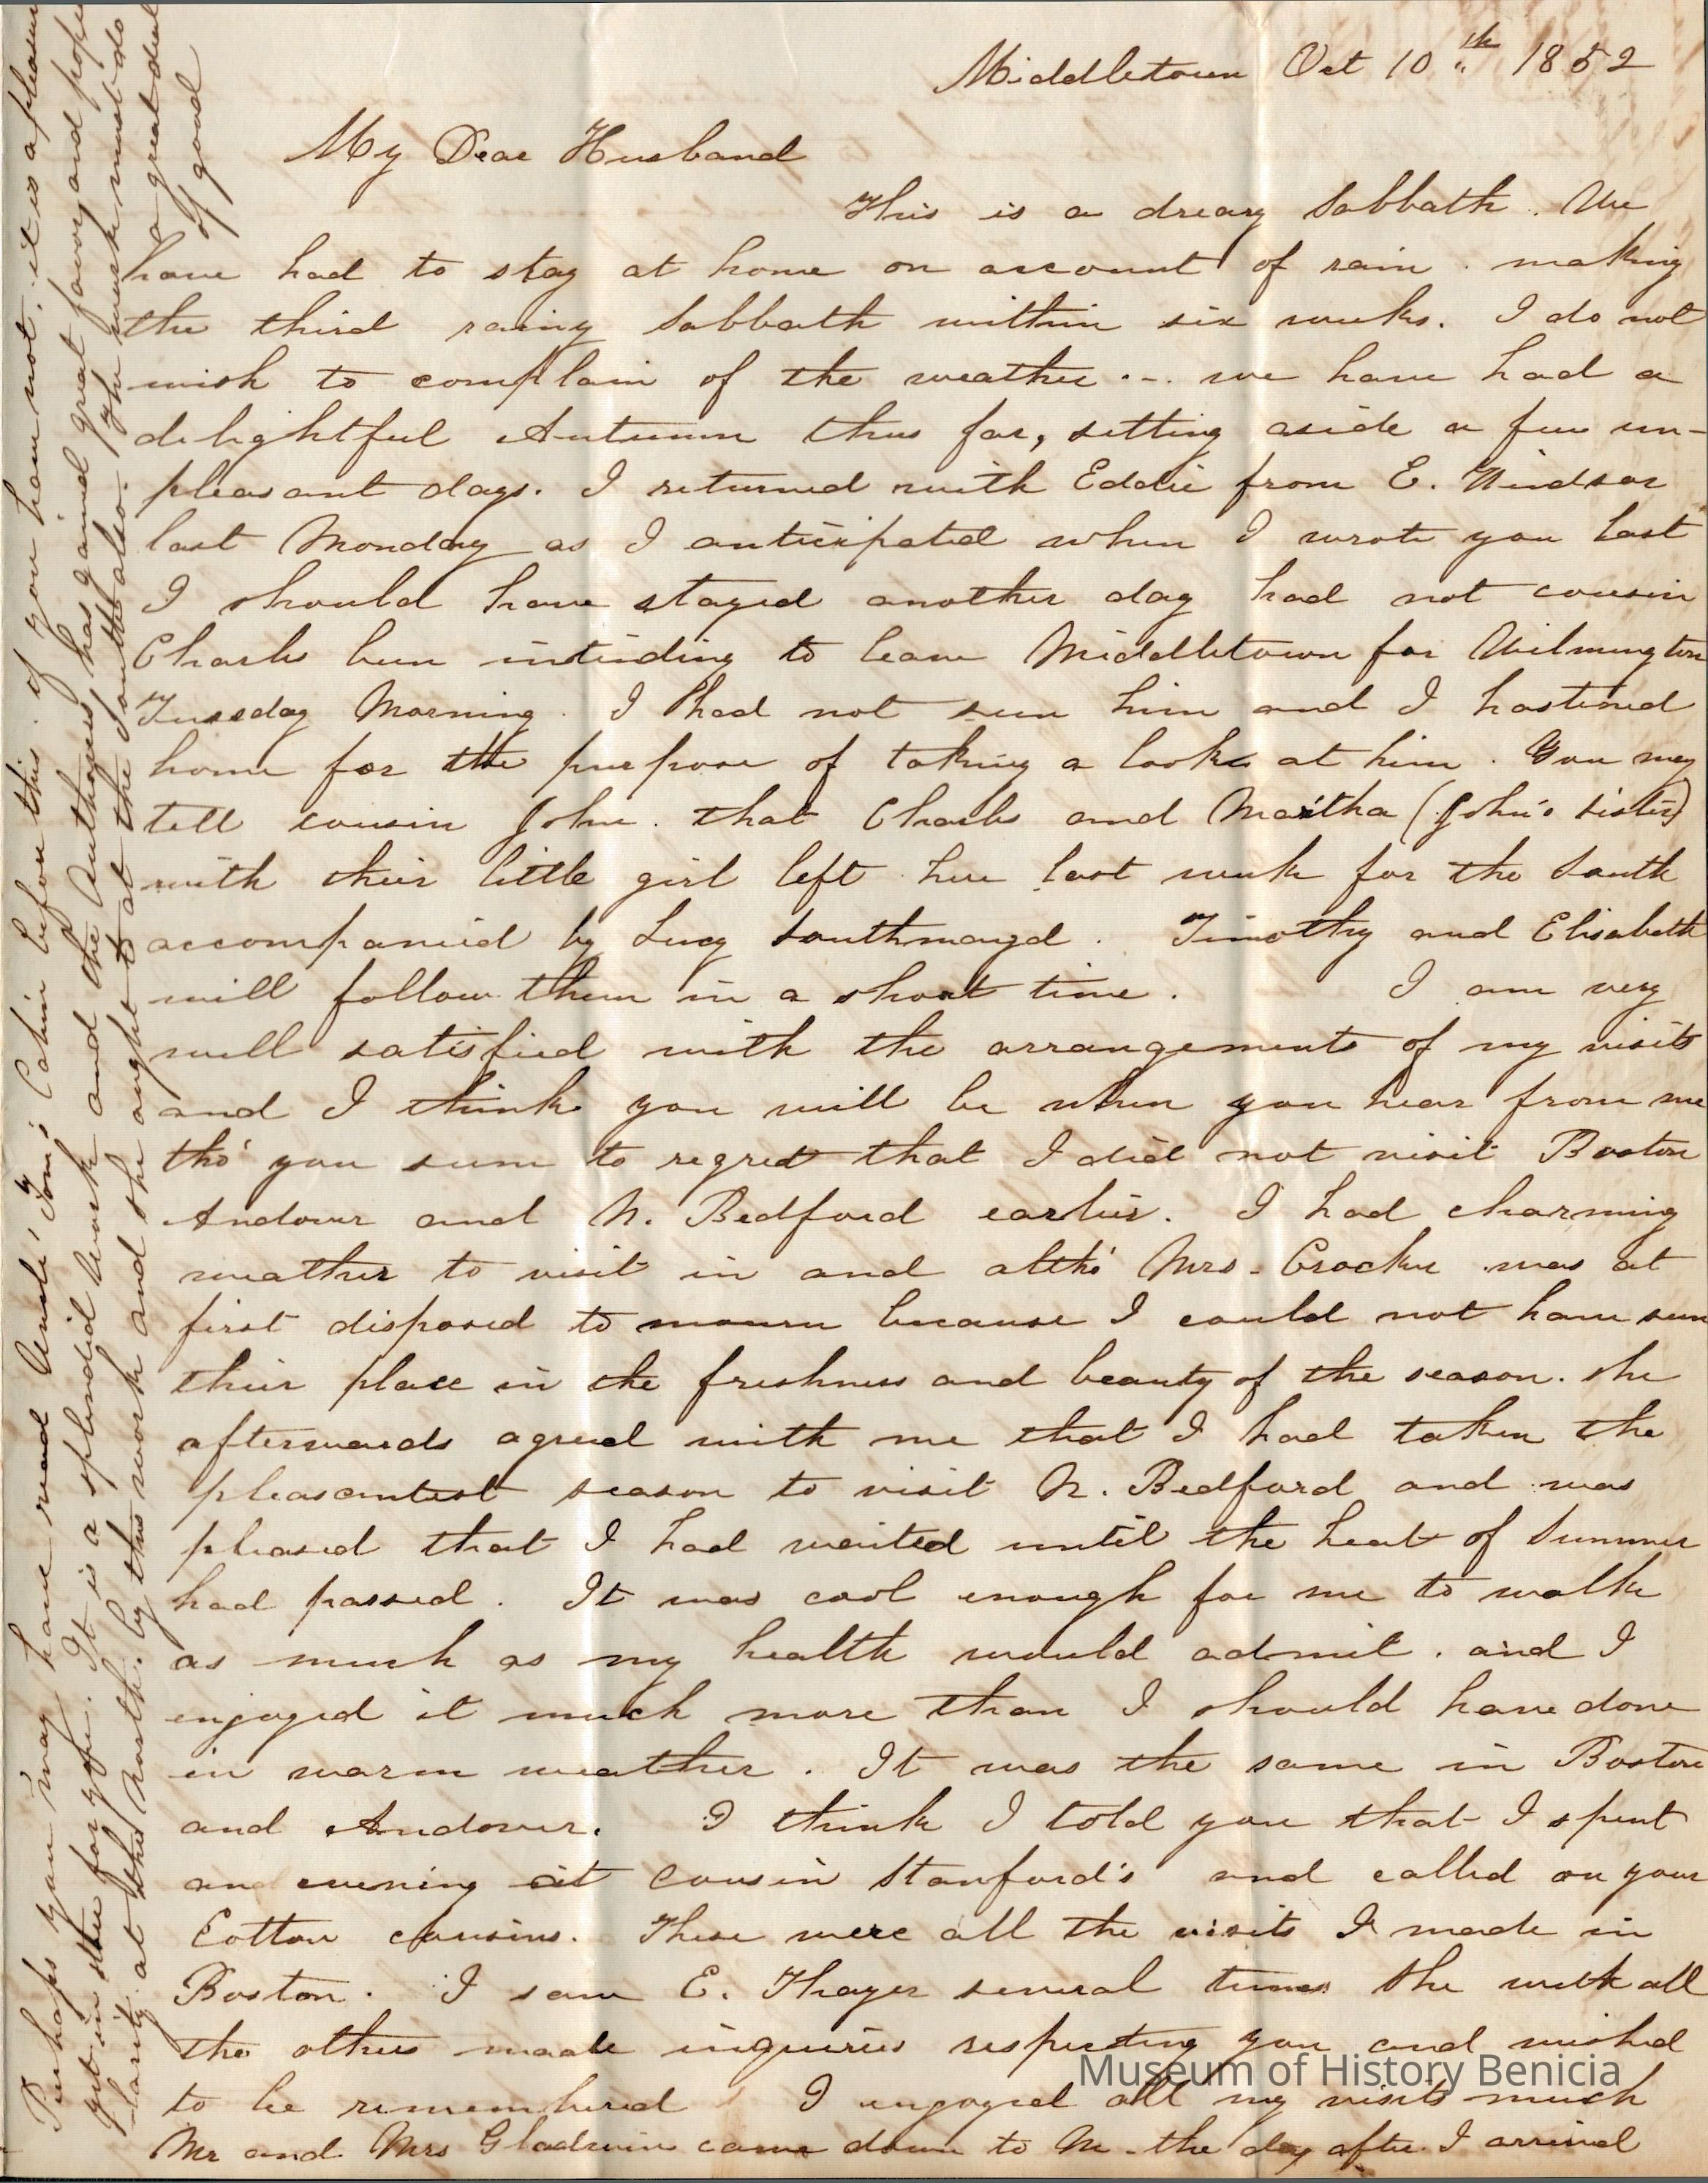 Middletown Oct 10th 1852
My Dear Husband
This is a dreary Sabbath. We
have had to stay at home on account of rain. making
the third rainy Sabbath within six weeks. I do not
wish to complain of the weather.-. we have had a
delightful Autumn thus far, setting aside a few un-
pleasant days. I returned with Eddie from E. Windsor
last Monday as I anticipated when I wrote you last
I should have stayed another day had not cousin
Charles been intending to leave Middletown for Wilmington
Tuesday Morning. I had not seen him and I hastened
home for the purpose of taking a look at him. You may
tell cousin John. that Charles and Martha (John's sister)
with their little girl left here last week for the South
accompanied by Lucy Southmayd. Timothy and Elisabeth
will follow them in a short time. I am very
well satisfied with the arrangements of my visits
and I think you will be when you hear from me
tho' you seem to regret that I did not visit Boston
Andover and N. Bedford earlier. I had charming
weather to visit in and altho' Mrs. Crocker was at
first disposed to mourn because I could not have seen
their place in the freshness and beauty of the season. she
afterwards agreed with me that I had taken the
pleasantest season to visit N. Bedford and was
pleased that I had waited until the heat of Summer
had passed. It was cool enough for me to walk
as much as my health would admit. and I
enjoyed it much more than I should have done
in warm weather. It was the same in Boston
and Andover. I think I told you that I spent
an evening at cousin Stanford's and called on your
Cotton cousins. These were all the visits I made in
Boston. I saw E. Thayer several times She with all
the others made inquiries respecting you and wished
to be remembered I enjoyed all my visits much
Mr and Mrs Gladwin came down to M. the day after I arrived
Perhaps you may have read Uncle Tom's Cabin before this. if you have not, it is a pleasure
yet in store for you. It is a splendid work and the Authoress has gained great favor and popu
larity at the North. by this work and she ought to at the South also. The work must do
a great deal
of good
Museum of History Benicia